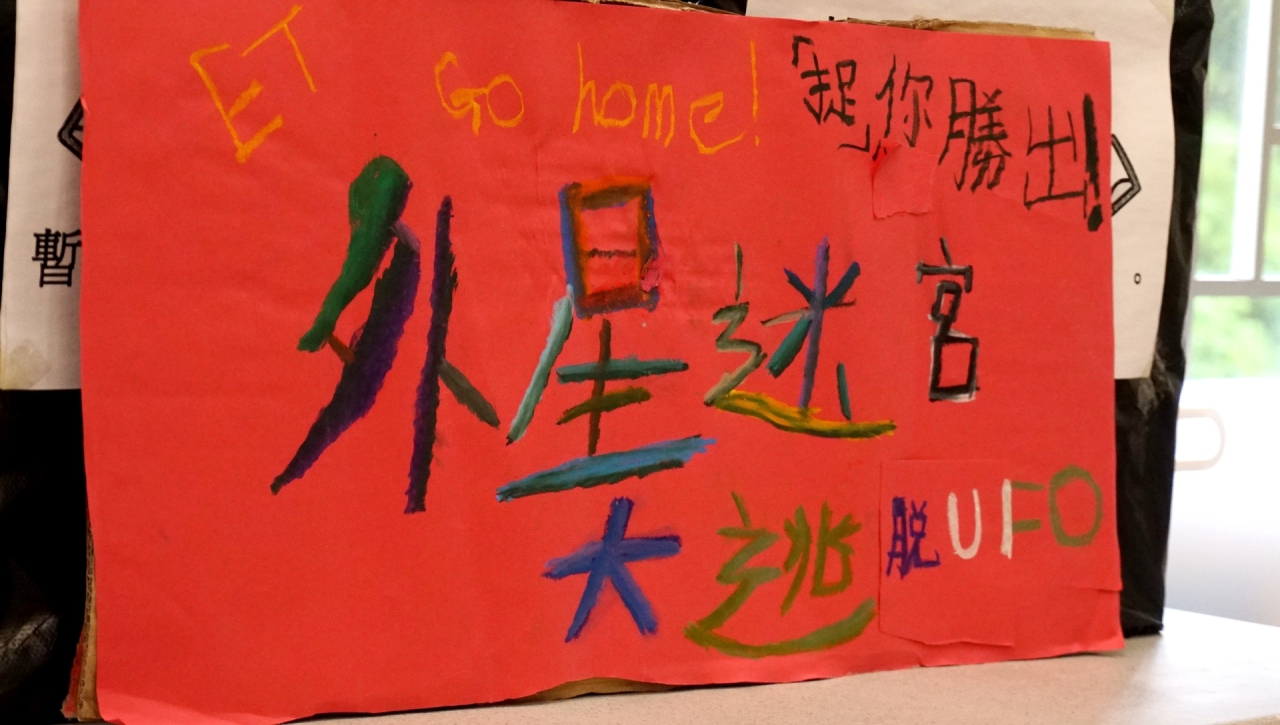 ET Go home!
「捉」你勝出!
外星迷宮
大逃脱UFO
暫
。